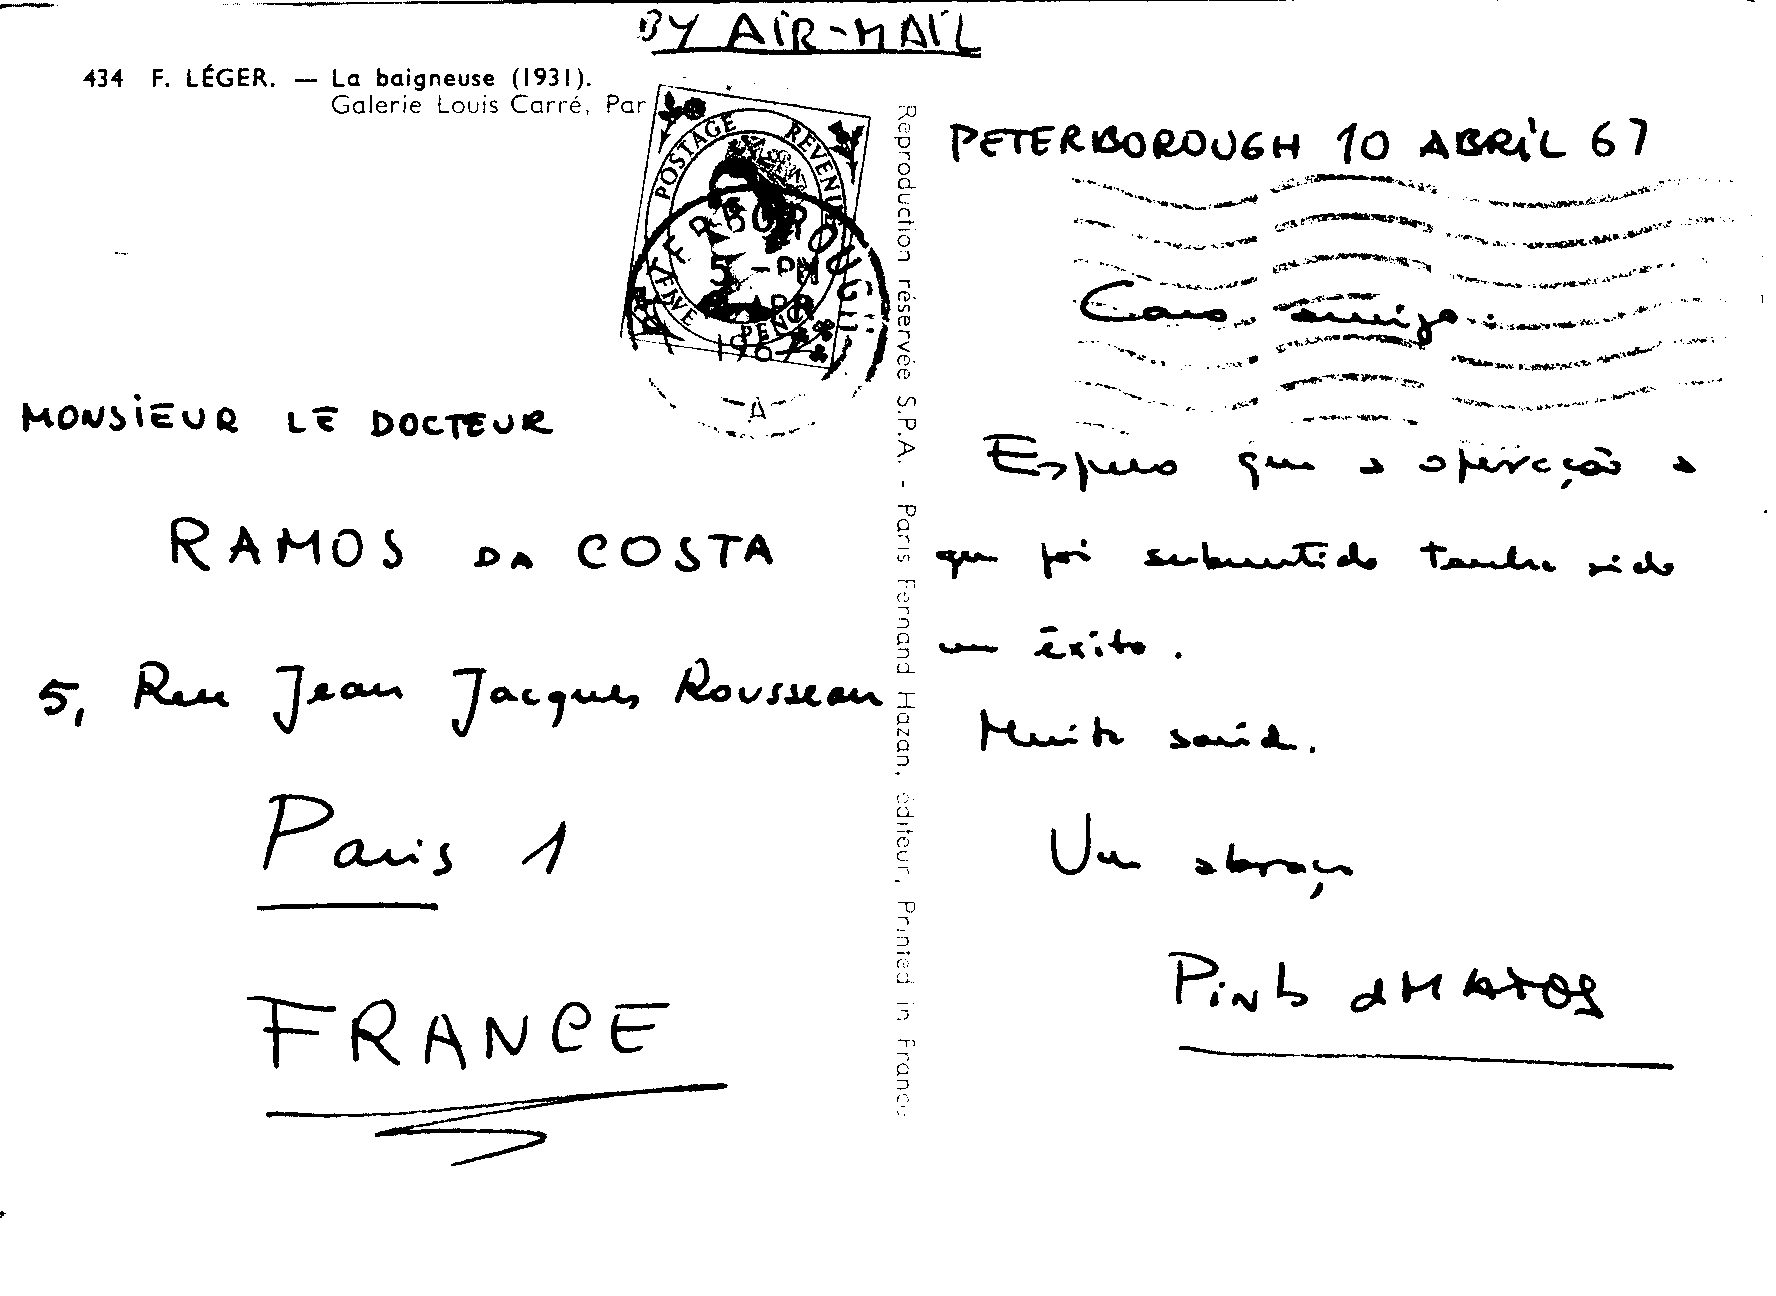 BY AIR-MAIL
434 F. LÉGER. — La baigneuse (1931).
Galerie Louis Carré, Par
POSTAGE REVENUE
FIVE PENCE
5 - PM
APR
1967
A
MONSIEUR LE DOCTEUR
RAMOS DA COSTA
5, Rue Jean Jacques Rousseau
Paris 1
FRANCE
Reproduction réservée S.P.A. - Paris Fernand Hazan, éditeur, Printed in France
PETERBOROUGH 10 ABRIL 67
Caro amigo:
Espero que a operação a
que foi submetido tenha sido
um êxito.
Muita saúde.
Um abraço
Pinto d MATOS